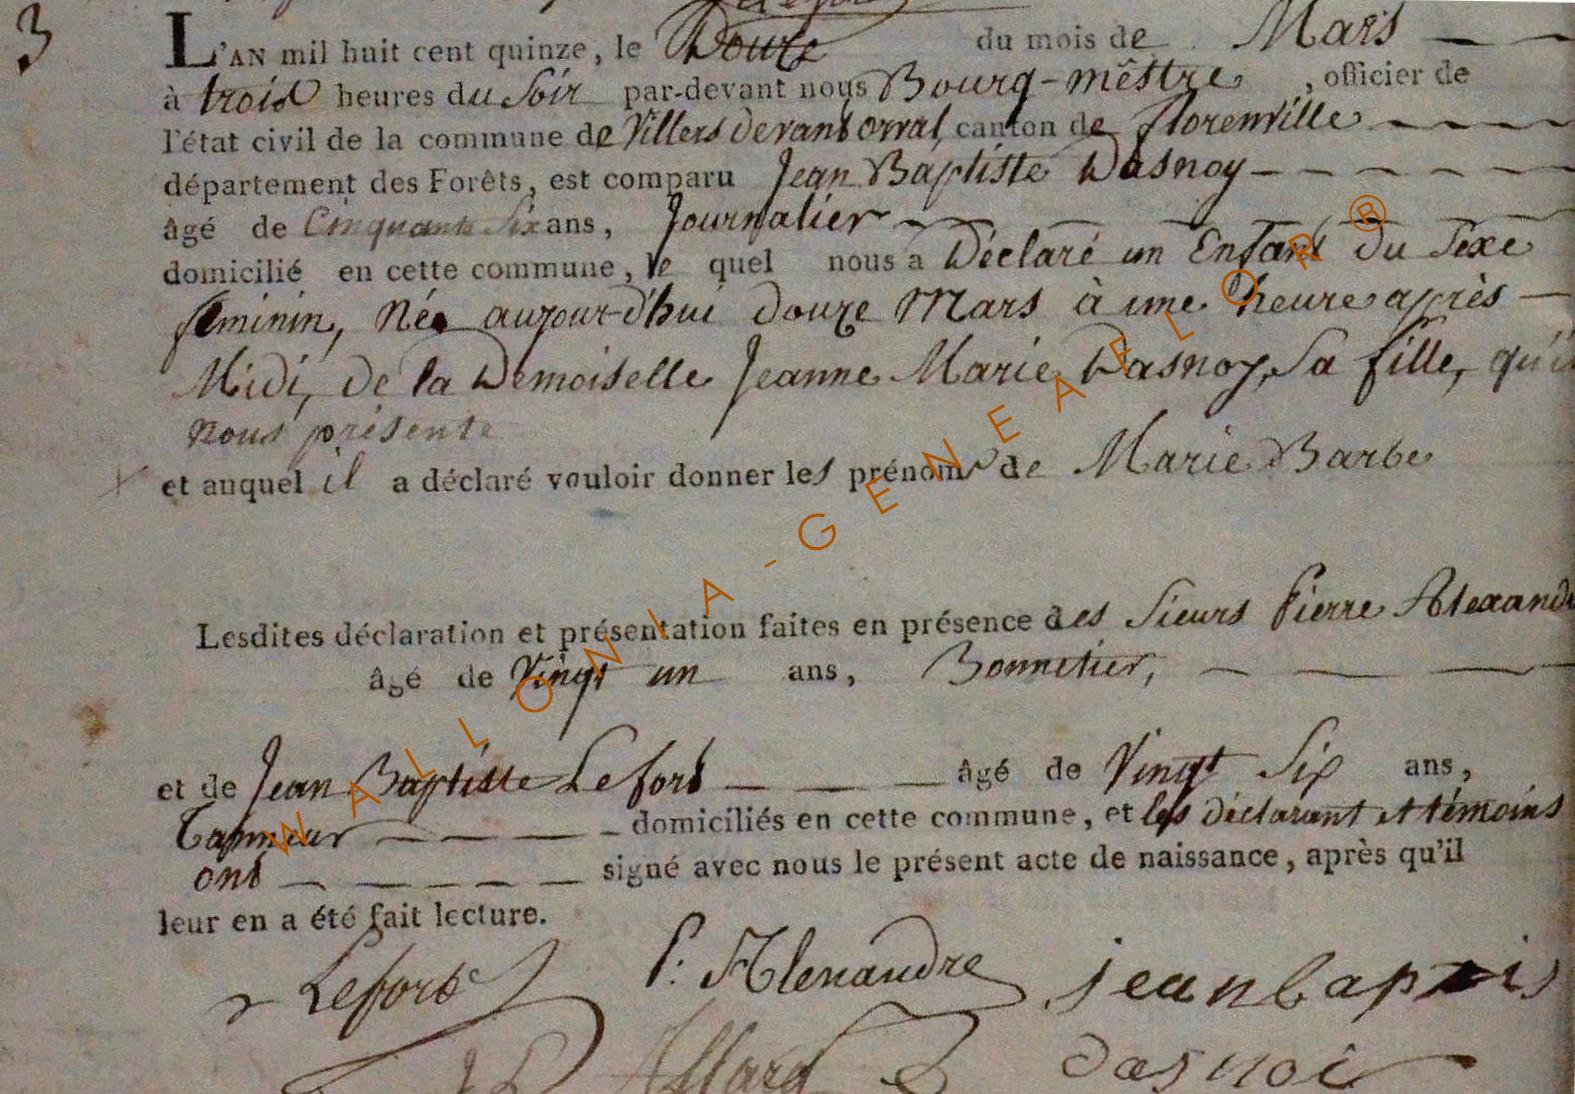 3
L'AN mil huit cent quinze, le Douze du mois de Mars
à trois heures du soir par-devant nous Bourg-mêstre, officier de
l'état civil de la commune de Villers devant orval, canton de florenville
département des Forêts, est comparu Jean Baptiste Dasnoy
âgé de Cinquante Six ans, Journalier
domicilié en cette commune, le quel nous a Déclaré un Enfant du Sexe
feminin, Née aujourd'hui douze Mars à une heure après
Midi, de la Demoiselle Jeanne Marie Dasnoy, Sa fille, qu'il
nous présente
et auquel il a déclaré vouloir donner les prénoms de Marie Barbe
Lesdites déclaration et présentation faites en présence des Sieurs Pierre Alexandre
âgé de Vingt un ans, Bonnetier,
et de Jean Baptiste Lefort âgé de Vingt Six ans,
Tanneur domiciliés en cette commune, et les déclarant et témoins
ont signé avec nous le présent acte de naissance, après qu'il
leur en a été fait lecture.
Lefort P. Alexandre jean bapis
Allard dasnoi
WALLONIA-GENEAELOR®